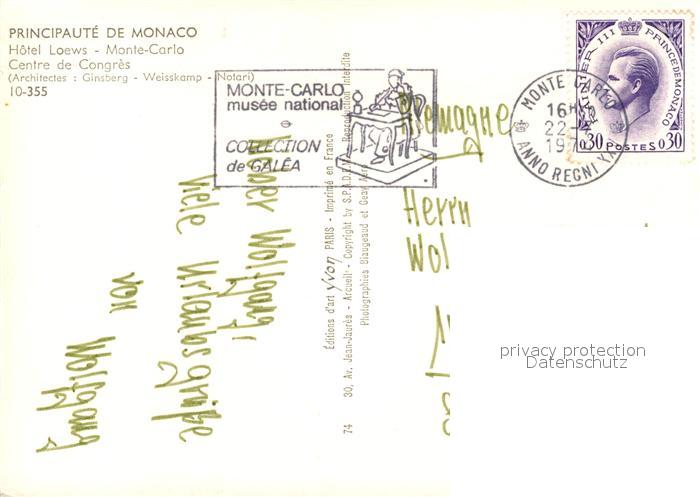 PRINCIPAUTÉ DE MONACO
Hôtel Loews - Monte-Carlo
Centre de Congrès
(Architectes : Ginsberg - Weisskamp - Notari)
10-355
MONTE-CARLO
musée national
COLLECTION
de GALÉA
MONTE-CARLO
16H
22
197
ANNO REGNI
RAINIER III PRINCE DE MONACO
0,30 POSTES 0,30
Wolfgang,
viele Urlaubsgrüße
von
Wolfgang
Reproduction interdite
Éditions d'art Yvon PARIS - Imprimé en France
30, Av. Jean-Jaurès - Arcueil - Copyright by S.P.A.D.E.M.
Photographies Blaugeaud et Geay
74
Herrn
Wol
privacy protection
Datenschutz